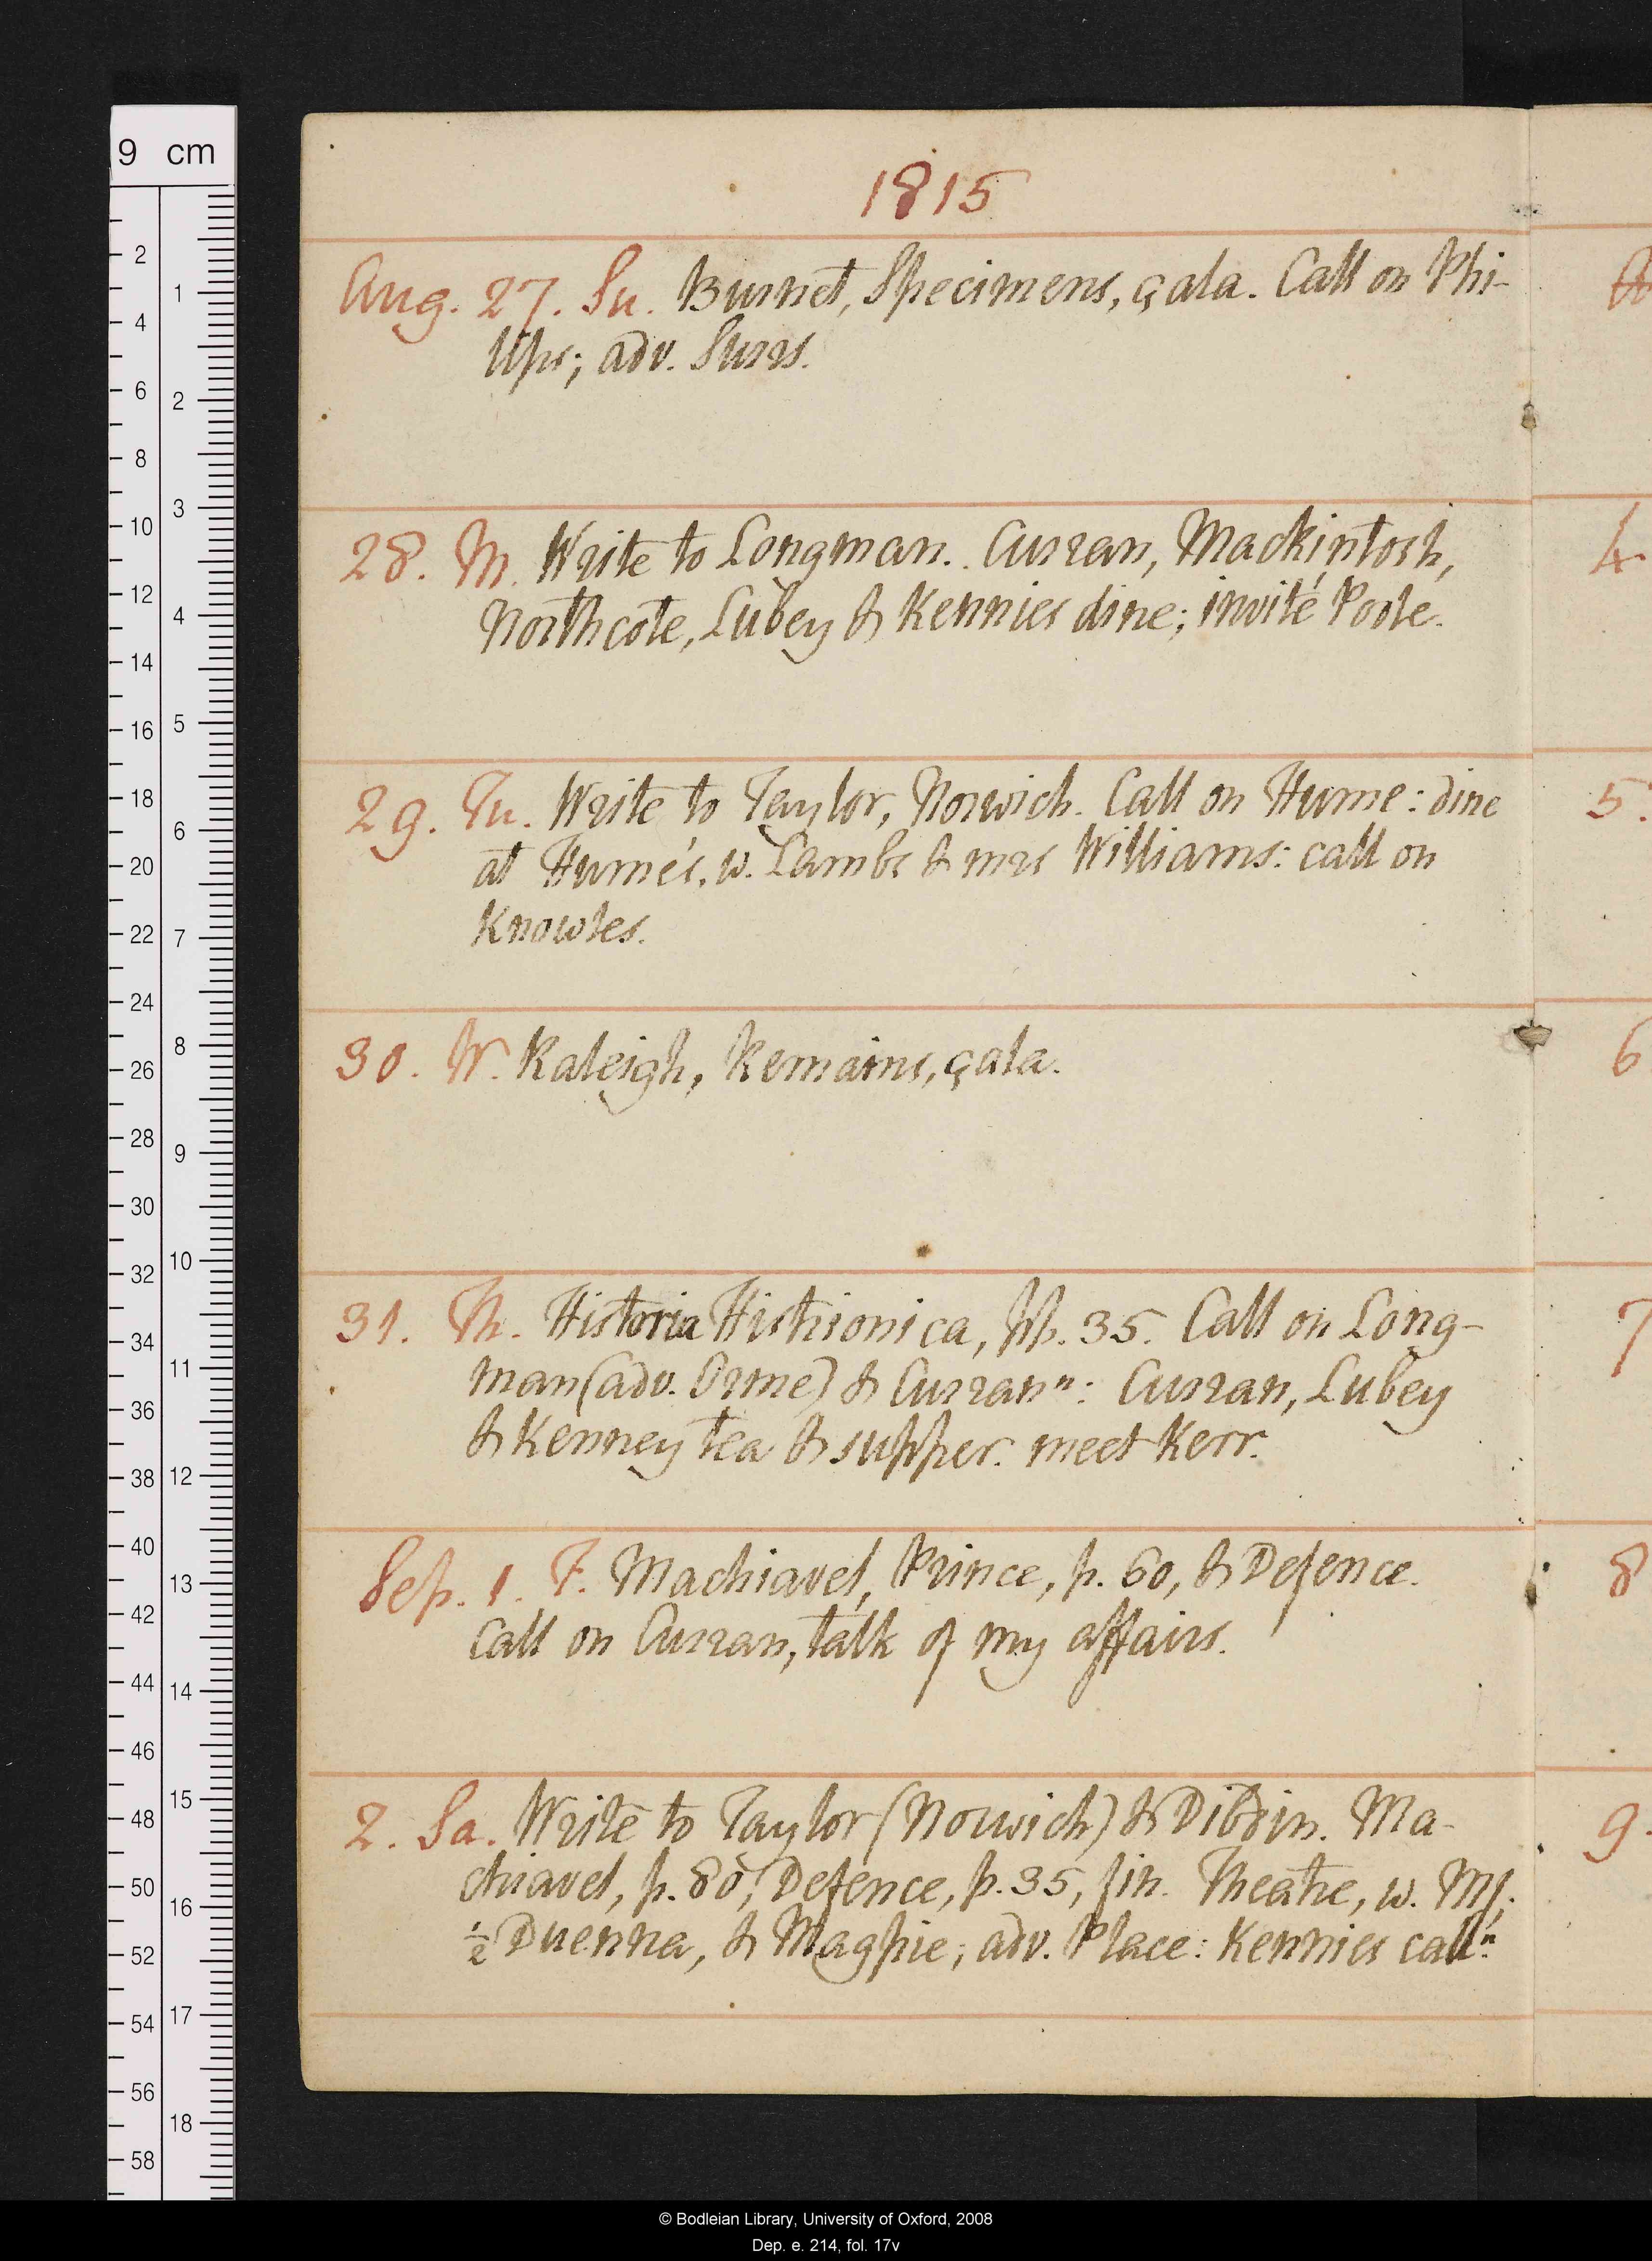 9 cm
1815
Aug. 27. Su. Burnet, Specimens, çala. Call on Phi-
lips; adv. Surrs.
28. M. Write to Longman. Curran, Mackintosh,
Northcote, Lubey & Kennies dine; invité Poole.
29. Tu. Write to Taylor, Norwich. Call on Hume: dine
at Hume's, w. Lambs & mrs Williams: call on
Knowles.
30. W. Raleigh, Remains, çala.
31. Th. Historia Histrionica, pp. 35. Call on Long-
man (adv. Orme) & Curran n: Curran, Lubey
& Kenney tea & supper. meet Kerr.
Sep. 1. F. Machiavel, Prince, p. 60, & Defence.
Call on Curran, talk of my affairs.
2. Sa. Write to Taylor (Norwich) & Dibdin. Ma-
chiavel, p. 80; Defence, p. 35, fin. Theatre, w. MJ,
½ Duenna, & Magpie; adv. Place: Kennies call n.
4
5.
6
7
8
9.
2
4
6
8
10
12
14
16
18
20
22
24
26
28
30
32
34
36
38
40
42
44
46
48
50
52
54
56
58
1
2
3
4
5
6
7
8
9
10
11
12
13
14
15
16
17
18
© Bodleian Library, University of Oxford, 2008
Dep. e. 214, fol. 17v